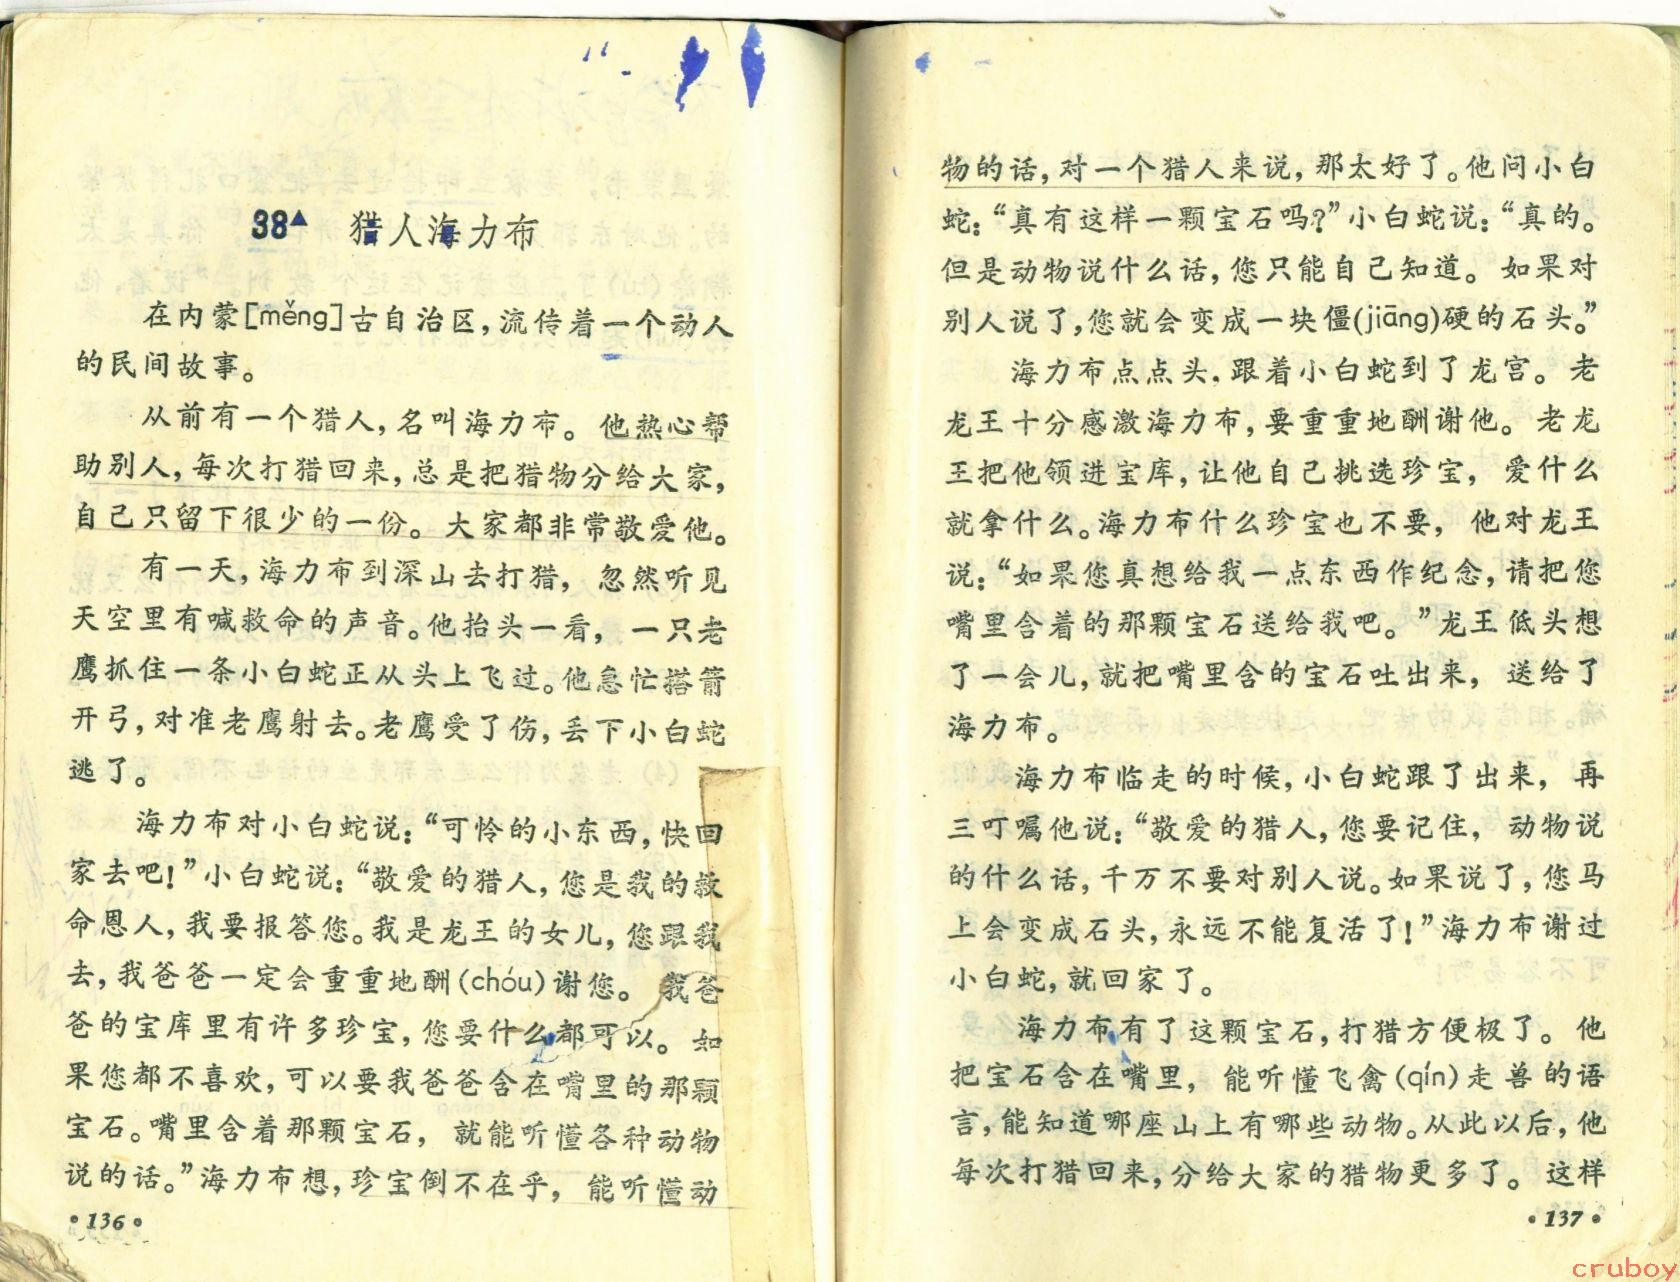 38▲ 猎人海力布
在内蒙[měng]古自治区，流传着一个动人
的民间故事。
从前有一个猎人，名叫海力布。他热心帮
助别人，每次打猎回来，总是把猎物分给大家，
自己只留下很少的一份。大家都非常敬爱他。
有一天，海力布到深山去打猎，忽然听见
天空里有喊救命的声音。他抬头一看，一只老
鹰抓住一条小白蛇正从头上飞过。他急忙搭箭
开弓，对准老鹰射去。老鹰受了伤，丢下小白蛇
逃了。
海力布对小白蛇说：“可怜的小东西，快回
家去吧！”小白蛇说：“敬爱的猎人，您是我的救
命恩人，我要报答您。我是龙王的女儿，您跟我
去，我爸爸一定会重重地酬(chóu)谢您。我爸
爸的宝库里有许多珍宝，您要什么都可以。如
果您都不喜欢，可以要我爸爸含在嘴里的那颗
宝石。嘴里含着那颗宝石，就能听懂各种动物
说的话。”海力布想，珍宝倒不在乎，能听懂动
•136•
物的话，对一个猎人来说，那太好了。他问小白
蛇：“真有这样一颗宝石吗？”小白蛇说：“真的。
但是动物说什么话，您只能自己知道。如果对
别人说了，您就会变成一块僵(jiāng)硬的石头。”
海力布点点头，跟着小白蛇到了龙宫。老
龙王十分感激海力布，要重重地酬谢他。老龙
王把他领进宝库，让他自己挑选珍宝，爱什么
就拿什么。海力布什么珍宝也不要，他对龙王
说：“如果您真想给我一点东西作纪念，请把您
嘴里含着的那颗宝石送给我吧。”龙王低头想
了一会儿，就把嘴里含的宝石吐出来，送给了
海力布。
海力布临走的时候，小白蛇跟了出来，再
三叮嘱他说：“敬爱的猎人，您要记住，动物说
的什么话，千万不要对别人说。如果说了，您马
上会变成石头，永远不能复活了！”海力布谢过
小白蛇，就回家了。
海力布有了这颗宝石，打猎方便极了。他
把宝石含在嘴里，能听懂飞禽(qín)走兽的语
言，能知道哪座山上有哪些动物。从此以后，他
每次打猎回来，分给大家的猎物更多了。这样
•137•
cruboy